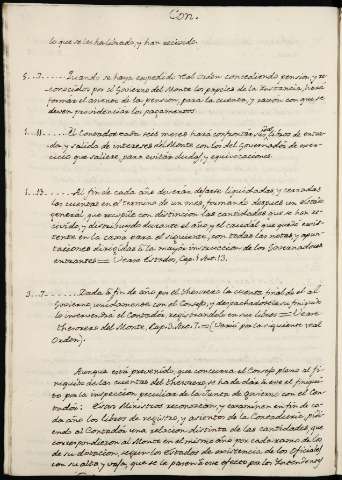 Con.
lo que se les ha librado, y han recivido.
5...7...... Quando se haya expedido real orden concediendo pension, y re-
conocidos por el Govierno del Monte los papeles de la Instancia, hará
formar el asiento de la pension, para la cuenta, y razon con que se
deven providenciar los pagamentos.
1...11..... El Contador cada tres meses hará confrontar sus libros de entra-
da y salida de intereses del Monte con los del Governador de exer-
cicio que saliere, para evitar dudas, y equivocaciones.
1...13..... Al fin de cada año deverán dejarse liquidadas, y cerradas
las cuentas en el termino de un mes, formando despues un estado
general que recopile con distincion las cantidades que se han re-
civido, y distribuido durante el año, y el caudal que quede exis-
tente en la caxa para el siguiente, con todas las notas, y apun-
taciones dirigidas á la mayor instruccion de los Governadores
entrantes = Vease Estados, Cap. 1 Art. 13.
3...7....... Dada á fin de año por el Thesorero la cuenta final de el al
Govierno, unidamente con el Consejo, y despachadosele su finiquito
lo intervendrá el Contador, registrandolo en sus libros = Vease
Thesorero del Monte, Cap. 3. Art. 7. = (Vease por la siguiente real
Orden).
Aunque está prevenido, que concurra el Consejo pleno al fi-
niquito de las cuentas del Thesorero, se ha de dar á este el finiqui-
to por la inspeccion peculiar de la Junta de Govierno con el Con-
tador: Estos Ministros reconocerán, y examinen en fin de ca-
da año los libros de registro, y asientos de la Contaduría, pidi-
endo al Contador una relacion distinta de las cantidades, que
correspondieron al Monte en el mismo año por cada ramo de los
de su dotacion, segun los Estados de existencia de los Oficiales
con su alta y vaja, que se la pasarán á ese efecto por los Intendentes